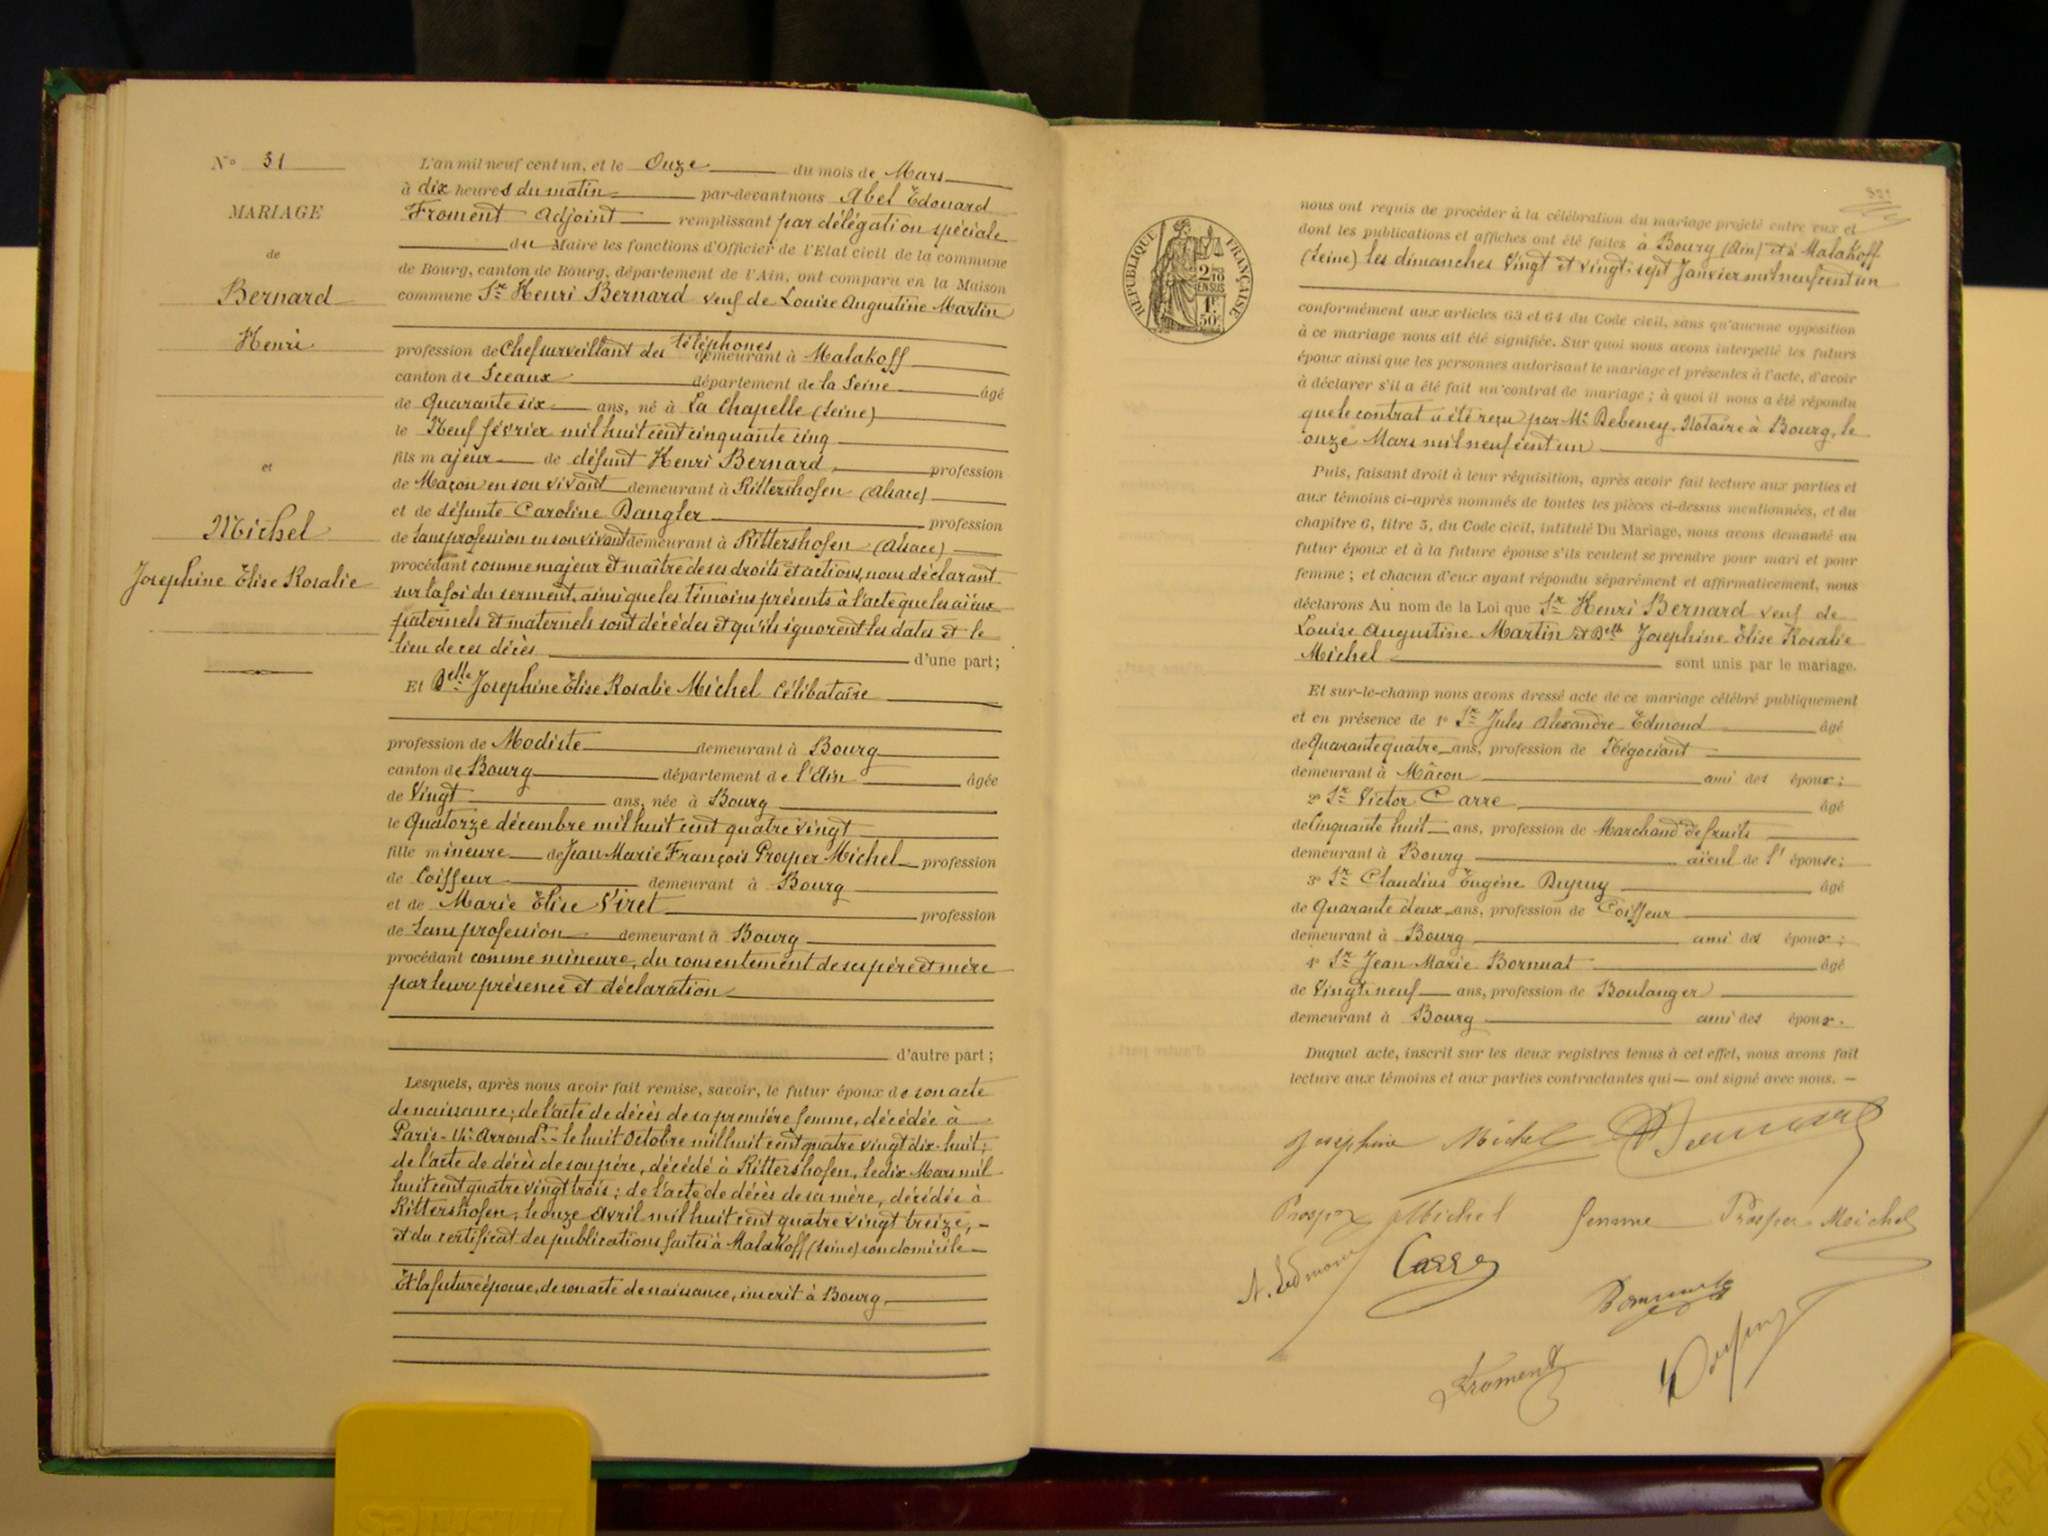 N° 31
MARIAGE
de
Bernard
Henri
et
Michel
Josephine Elise Rosalie
L'an mil neuf cent un, et le Onze du mois de Mars
à dix heures du matin par-devant nous Abel Edouard
Froment Adjoint remplissant par délégation spéciale
du Maire les fonctions d'Officier de l'Etat civil de la commune
de Bourg, canton de Bourg, département de l'Ain, ont comparu en la Maison
commune Sr Henri Bernard veuf de Louise Augustine Martin
profession de Chef surveillant des téléphones demeurant à Malakoff
canton de Sceaux département de la Seine âgé
de Quarante six ans, né à La Chapelle (Seine)
le Neuf février mil huit cent cinquante cinq
fils majeur de défunt Henri Bernard profession
de Maçon en son vivant demeurant à Rittershofen (Alsace)
et de défunte Caroline Dangler profession
de Sans profession en son vivant demeurant à Rittershofen (Alsace)
procédant comme majeur et maître de ses droits et actions, nous déclarant
sur la foi du serment, ainsi que les témoins présents à l'acte que les aïeux
paternels et maternels sont décédés et qu'ils ignorent les dates et le
lieu de ces décès d'une part;
Et Delle Josephine Elise Rosalie Michel Célibataire
profession de Modiste demeurant à Bourg
canton de Bourg département de l'Ain âgée
de Vingt ans, née à Bourg
le Quatorze décembre mil huit cent quatre vingt
fille mineure de Jean Marie François Prosper Michel profession
de Coiffeur demeurant à Bourg
et de Marie Elise Viret profession
de Sans profession demeurant à Bourg
procédant comme mineure, du consentement de ses père et mère
par leur présence et déclaration
d'autre part;
Lesquels, après nous avoir fait remise, savoir, le futur époux de son acte
de naissance; de l'acte de décès de sa première femme, décédée à
Paris - 14e Arrondt - le huit Octobre mil huit cent quatre vingt dix-huit;
de l'acte de décès de son père, décédé à Rittershofen, le dix Mars mil
huit cent quatre vingt trois; de l'acte de décès de sa mère, décédée à
Rittershofen, le onze Avril mil huit cent quatre vingt treize, -
et du certificat des publications faites à Malakoff (Seine) son domicile -
Et la future épouse, de son acte de naissance, inscrit à Bourg
REPUBLIQUE FRANÇAISE
2/10 EN SUS
1F 50c
nous ont requis de procéder à la célébration du mariage projeté entre eux et
dont les publications et affiches ont été faites à Bourg (Ain) et à Malakoff
(Seine) les dimanches Vingt et vingt-sept Janvier mil neuf cent un
conformément aux articles 63 et 64 du Code civil, sans qu'aucune opposition
à ce mariage nous ait été signifiée. Sur quoi nous avons interpellé les futurs
époux ainsi que les personnes autorisant le mariage et présentes à l'acte, d'avoir
à déclarer s'il a été fait un contrat de mariage; à quoi il nous a été répondu
que le contrat a été reçu par Me Debeney, Notaire à Bourg, le
onze Mars mil neuf cent un
Puis, faisant droit à leur réquisition, après avoir fait lecture aux parties et
aux témoins ci-après nommés de toutes les pièces ci-dessus mentionnées, et du
chapitre 6, titre 5, du Code civil, intitulé Du Mariage, nous avons demandé au
futur époux et à la future épouse s'ils veulent se prendre pour mari et pour
femme; et chacun d'eux ayant répondu séparément et affirmativement, nous
déclarons Au nom de la Loi que Sr Henri Bernard veuf de
Louise Augustine Martin et Delle Josephine Elise Rosalie
Michel sont unis par le mariage.
Et sur-le-champ nous avons dressé acte de ce mariage célébré publiquement
et en présence de 1° Sr Jules Alexandre Edmond âgé
de Quarante quatre ans, profession de Négociant
demeurant à Mâcon ami des époux;
2° Sr Victor Carre âgé
de Cinquante huit ans, profession de Marchand de fruits
demeurant à Bourg aïeul de l'épouse;
3° Sr Claudius Eugène Dupuy âgé
de Quarante deux ans, profession de Coiffeur
demeurant à Bourg ami des époux;
4° Sr Jean Marie Bornuat âgé
de Vingt-neuf ans, profession de Boulanger
demeurant à Bourg ami des époux.
Duquel acte, inscrit sur les deux registres tenus à cet effet, nous avons fait
lecture aux témoins et aux parties contractantes qui - ont signé avec nous. -
Josephine Michel Bernard
Prosper Michel femme Prosper Michel
A. Edmond Carre
Bornuat
Froment Dupuy